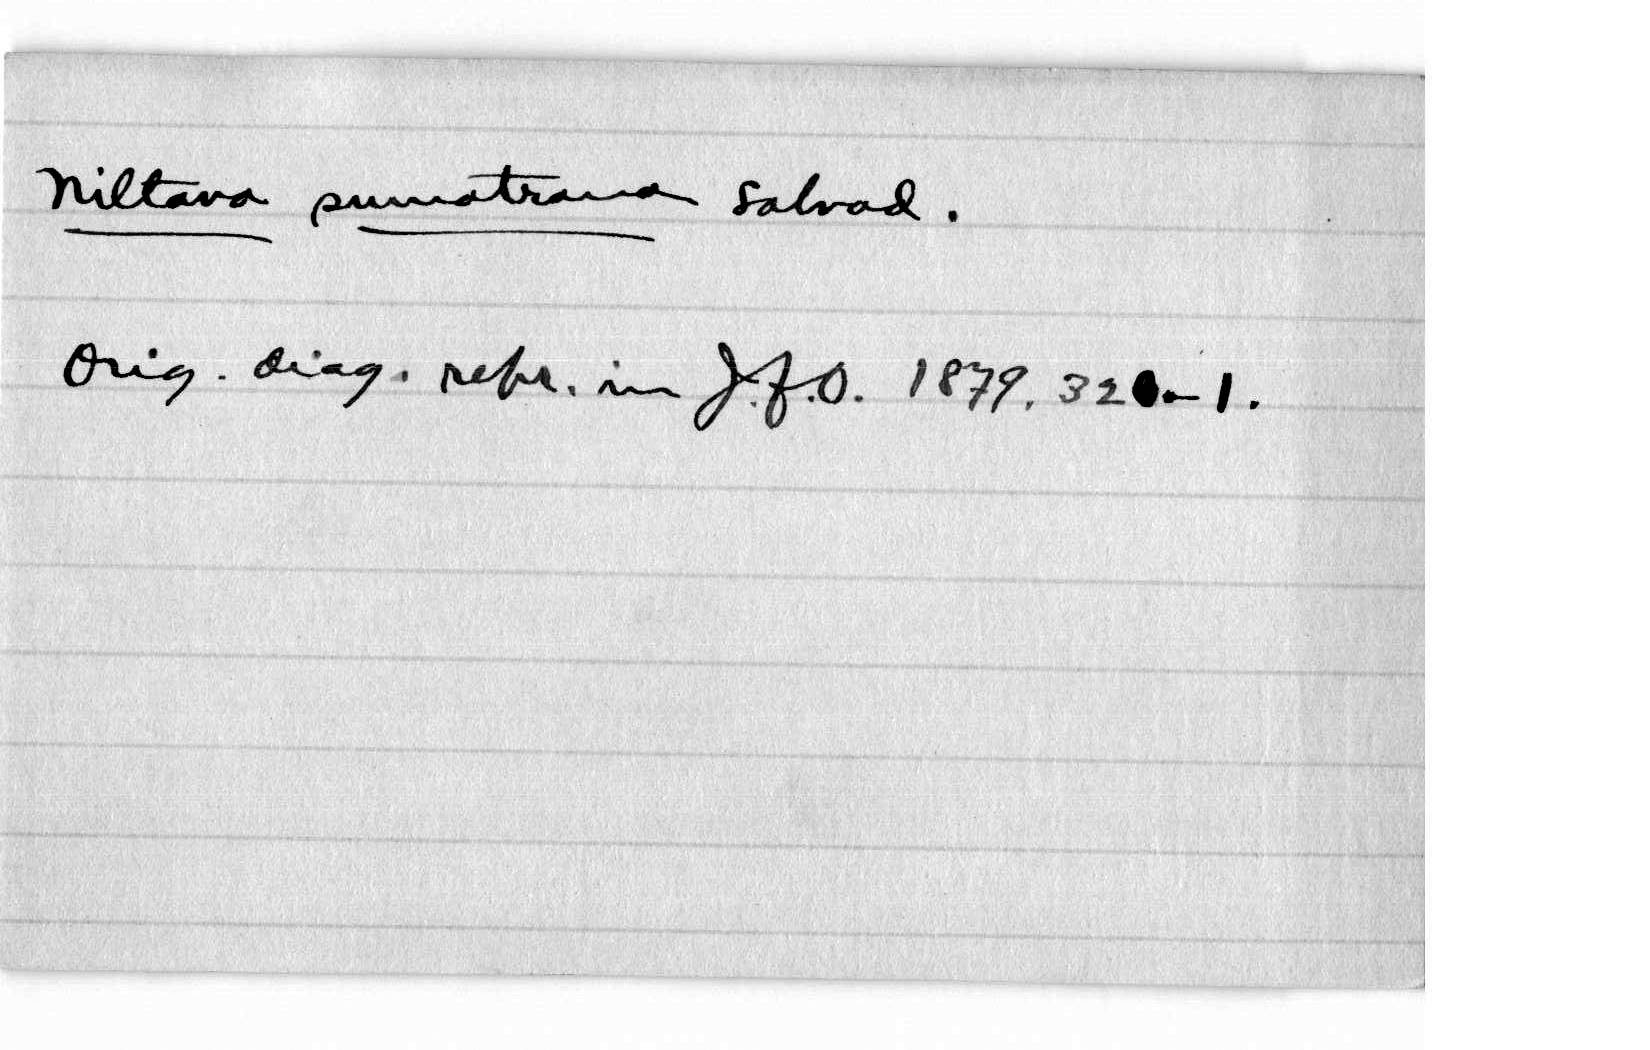 Niltava sumatrana Salvad.
Orig. diag. repr. in J.f.O. 1879, 320-1.